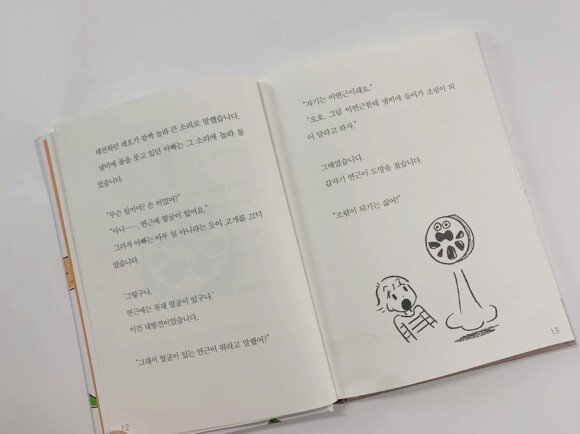 태연하던 레오가 깜짝 놀라 큰 소리로 말했습니다.
냄비에 물을 붓고 있던 아빠는 그 소리에 놀라 물
었습니다.
"무슨 일이야? 손 비었어?"
"아니……, 연근에 얼굴이 있어요."
그러자 아빠는 아무 일 아니라는 듯이 고개를 끄덕
였습니다.
'그렇구나.
연근에는 원래 얼굴이 있구나.'
이건 대발견이었습니다.
"그래서 얼굴이 있는 연근이 뭐라고 말했어?"
12
"자기는 이연근이래요."
"오호, 그럼 이연근한테 냄비에 들어가 조림이 되
어 달라고 하자."
그때였습니다.
갑자기 연근이 도망을 쳤습니다.
"조림이 되기는 싫어!"
13